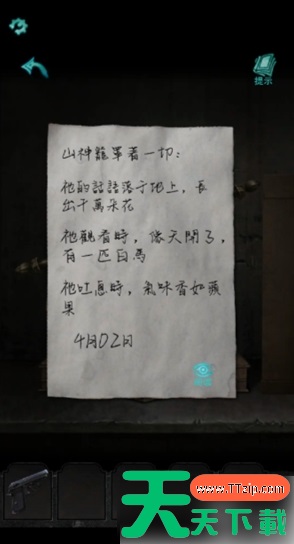 提示
山神籠罩着一切:
他的話語落于地上,長
出千萬朵花
他觀看時,像天開了,
有一匹白馬
他吐息時,氣味香如蘋
果
4月02日
www.TTzip.com
天天下載